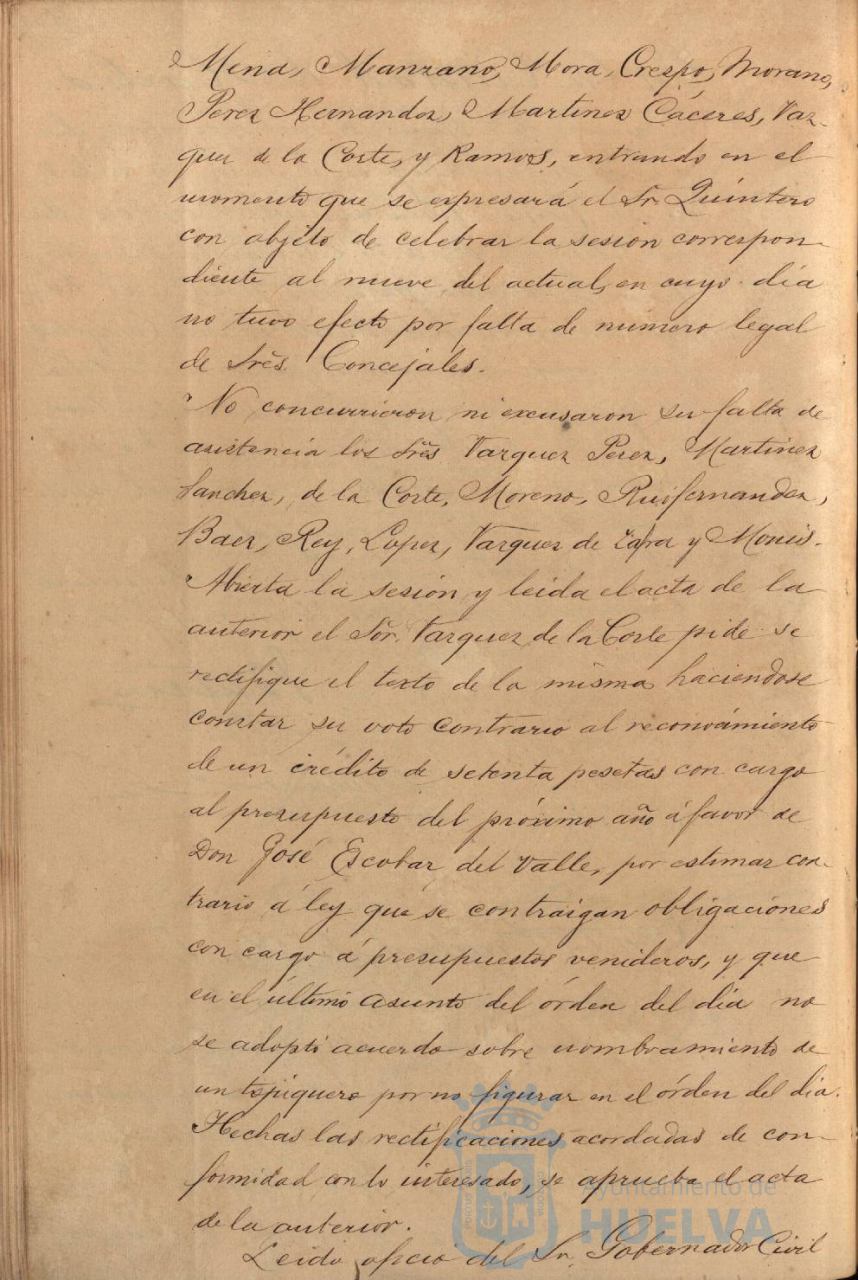 Mena, Manzano, Mora, Crespo, Morano,
Perez Hernandez, Martinez Cáceres, Vaz-
quez de la Corte, y Ramos, entrando en el
momento que se expresará el Sr. Quintero
con objeto de celebrar la sesion correspon-
diente al nueve del actual, en cuyo dia
no tuvo efecto por falta de número legal
de Srēs. Concejales.
No concurrieron ni excusaron su falta de
asistencia los Srēs Vazquez Perez, Martinez
Sanchez, de la Corte, Moreno, Ruifernandez,
Baez, Rey, Lopez, Vazquez de Zafra y Monis.
Abierta la sesion y leida el acta de la
anterior el Sōr. Vazquez de la Corte pide se
rectifique el texto de la misma haciendose
constar su voto contrario al reconocimiento
de un crédito de setenta pesetas con cargo
al presupuesto del próximo año á favor de
Don José Escobar del Valle, por estimar con-
trario á ley que se contraigan obligaciones
con cargo á presupuestos venideros, y que
en el último asunto del órden del dia no
se adoptó acuerdo sobre nombramiento de
un por no figurar en el órden del dia.
Hechas las rectificaciones acordadas de con-
formidad con lo interesado, se aprueba el acta
de la anterior.
Leido oficio del Sr. Gobernador Civil
Ayuntamiento de
HUELVA